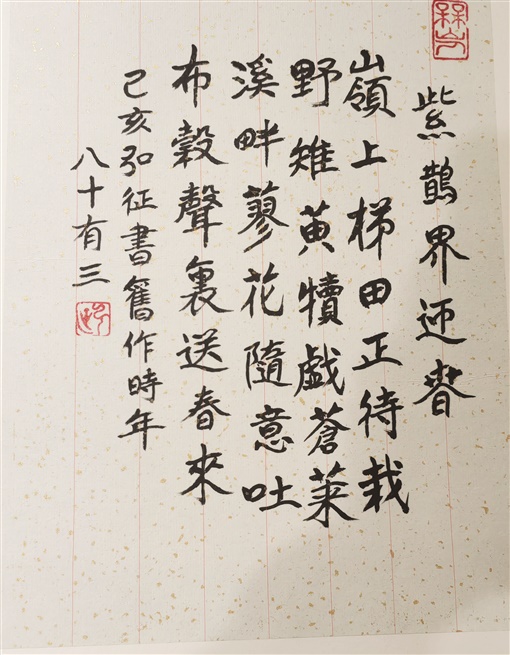 紫鵲界迎春
嶺上梯田正待栽
野雉黃犢戲蒼萊
溪畔蓼花隨意吐
布穀聲裏送春來
己亥弘征書舊作時年
八十有三